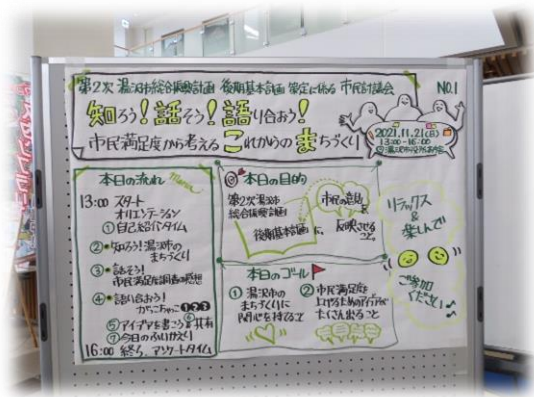 第2次 湯沢市総合振興計画 後期基本計画 策定に係る 市民討議会
NO.1
知ろう！話そう！語り合おう！
市民満足度から考える これからの まちづくり
2021.11.21(日)
13:00-16:00
本日の流れ
13:00 スタート
オリエンテーション
① 自己紹介タイム
② 知ろう！湯沢市の
まちづくり
③ 話そう！
市民満足度調査の感想
④ 語り合おう！
がっこちゃっこ ❶❷❸
⑤ アイデアを書こう ⑥共有
⑦ 今日のふりかえり
16:00 終了、アンケートタイム
本日の目的
第2次湯沢市
総合振興計画
後期基本計画に、
市民の意見を
反映させる
こと。
本日のゴール
① 湯沢市の
まちづくりに
関心を持つこと
② 市民満足度を
上げるためのアイデアが
たくさん出ること
リラックス
&
楽しんで
ご参加
ください♪